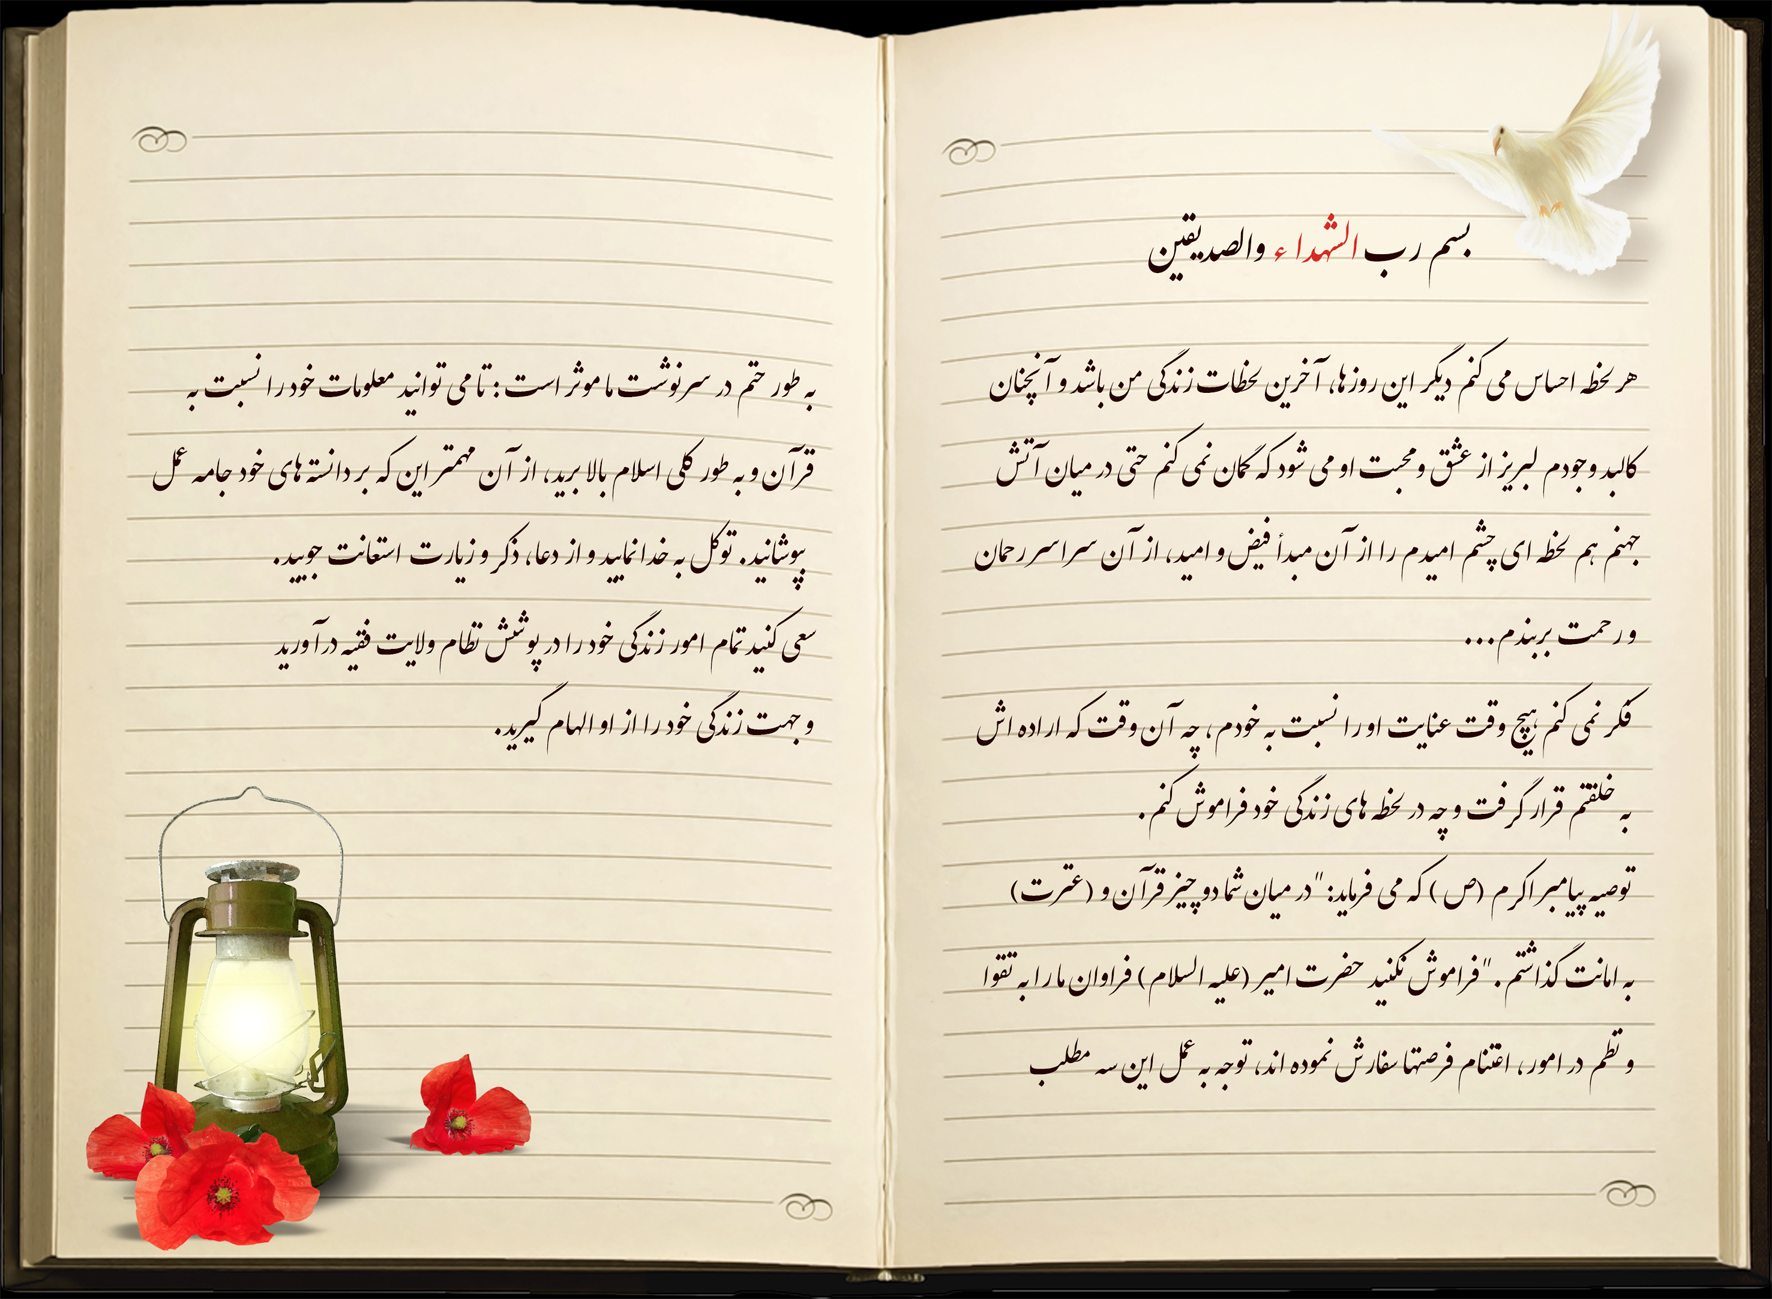 بسم رب الشهداء والصدیقین
هر لحظه احساس می کنم دیگر این روزها، آخرین لحظات زندگی من باشد و آنچنان
کالبد وجودم لبریز از عشق و محبت او می شود که گمان نمی کنم حتی در میان آتش
جهنم هم لحظه ای چشم امیدم را از آن مبدأ فیض و امید، از آن سراسر رحمان
و رحمت بربندم...
فکر نمی کنم هیچ وقت عنایت او را نسبت به خودم، چه آن وقت که اراده اش
به خلقتم قرار گرفت و چه در لحظه های زندگی خود فراموش کنم.
توصیه پیامبر اکرم (ص) که می فرماید: "در میان شما دو چیز قرآن و (عترت)
به امانت گذاشتم." فراموش نکنید حضرت امیر (علیه السلام) فراوان ما را به تقوا
و نظم در امور، اغتنام فرصتها سفارش نموده اند، توجه به عمل این سه مطلب
به طور حتم در سرنوشت ما موثر است: تا می توانید معلومات خود را نسبت به
قرآن و به طور کلی اسلام بالا برید، از آن مهمتر این که بر دانسته های خود جامه عمل
بپوشانید. توکل به خدا نمایید و از دعا، ذکر و زیارت استعانت جویید.
سعی کنید تمام امور زندگی خود را در پوشش نظام ولایت فقیه درآورید
و جهت زندگی خود را از او الهام گیرید.